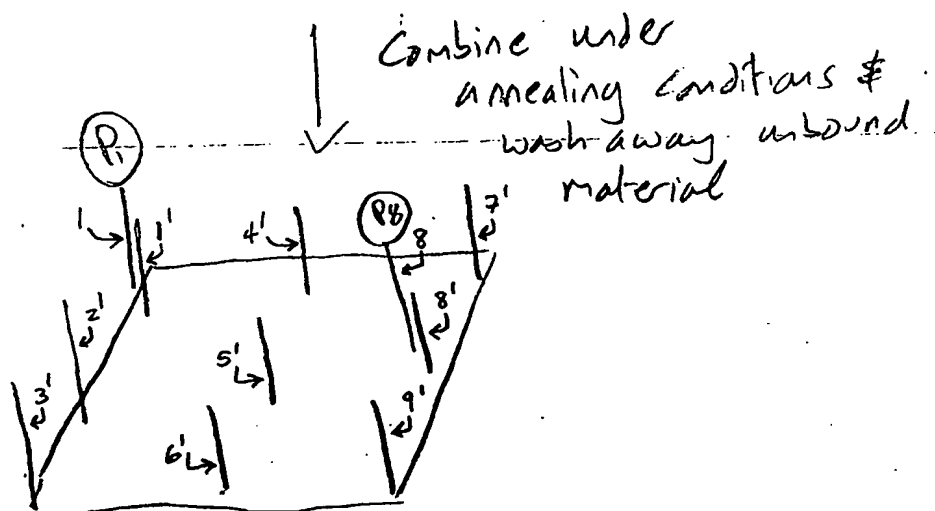 Combine under
annealing conditions &
wash away unbound
material
P1
P8
1
1'
4'
8
7'
2'
8'
5'
3'
9'
6'